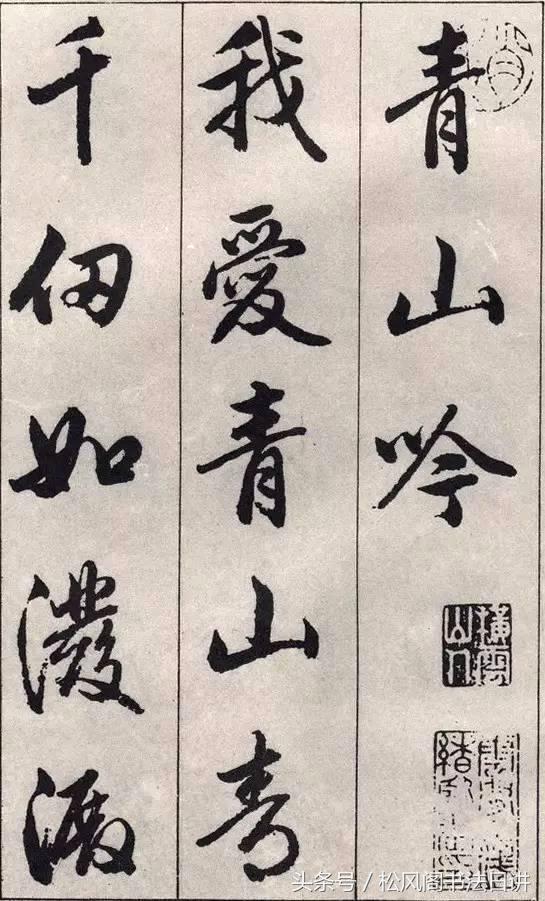 青山吟
橫雲山人
我愛青山青
千仞如潑
头条号 / 松风阁书法日讲